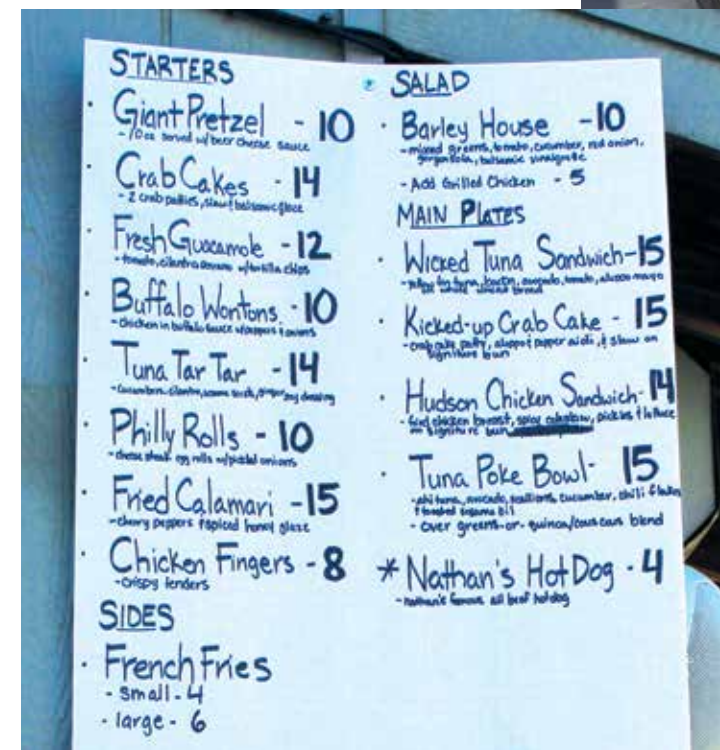 STARTERS
· Giant Pretzel - 10
- 10 oz served w/beer cheese sauce
· Crab Cakes - 14
- 2 crab patties, slaw & balsamic glaze
· Fresh Guacamole - 12
- tomato, cilantro w/tortilla chips
· Buffalo Wontons - 10
- chicken in buffalo sauce w/peppers & onions
· Tuna Tar Tar - 14
- cucumber, cilantro, soy dressing
· Philly Rolls - 10
- cheese steak egg rolls w/pickled onions
· Fried Calamari - 15
- cherry peppers & spiced honey glaze
· Chicken Fingers - 8
- crispy tenders
SIDES
· French Fries
- small - 4
- large - 6
SALAD
· Barley House - 10
- mixed greens, tomato, cucumber, red onion,
gorgonzola, balsamic vinaigrette
- Add Grilled Chicken - 5
MAIN PLATES
· Wicked Tuna Sandwich - 15
tuna, avocado, tomato, mayo
bread
· Kicked-up Crab Cake - 15
- crab cake patty, aleppo pepper aioli, & slaw on
signiture bun
· Hudson Chicken Sandwich - 14
- fried chicken breast, pickles & lettuce
on signiture bun
· Tuna Poke Bowl - 15
- ahi tuna, avocado, scallions, cucumber, chili flakes
& toasted sesame oil
- over greens -or- quinoa/couscous blend
* Nathan's Hot Dog - 4
- nathan's famous all beef hotdog